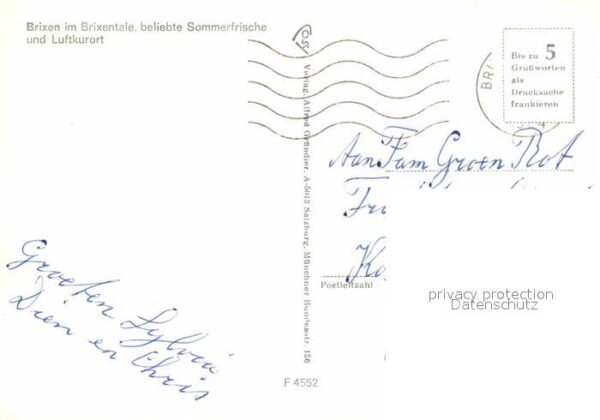 Brixen im Brixentale, beliebte Sommerfrische
und Luftkurort
Bis zu 5
Grußworten
als
Drucksache
frankieren
BRI
Verlag Alfred Gründler, A-5015 Salzburg, Münchner Bundesstr. 156
Aan Fam Groen Rot
Postleitzahl
privacy protection
Datenschutz
Groeten Sylvia
Dien en Chris
F 4552